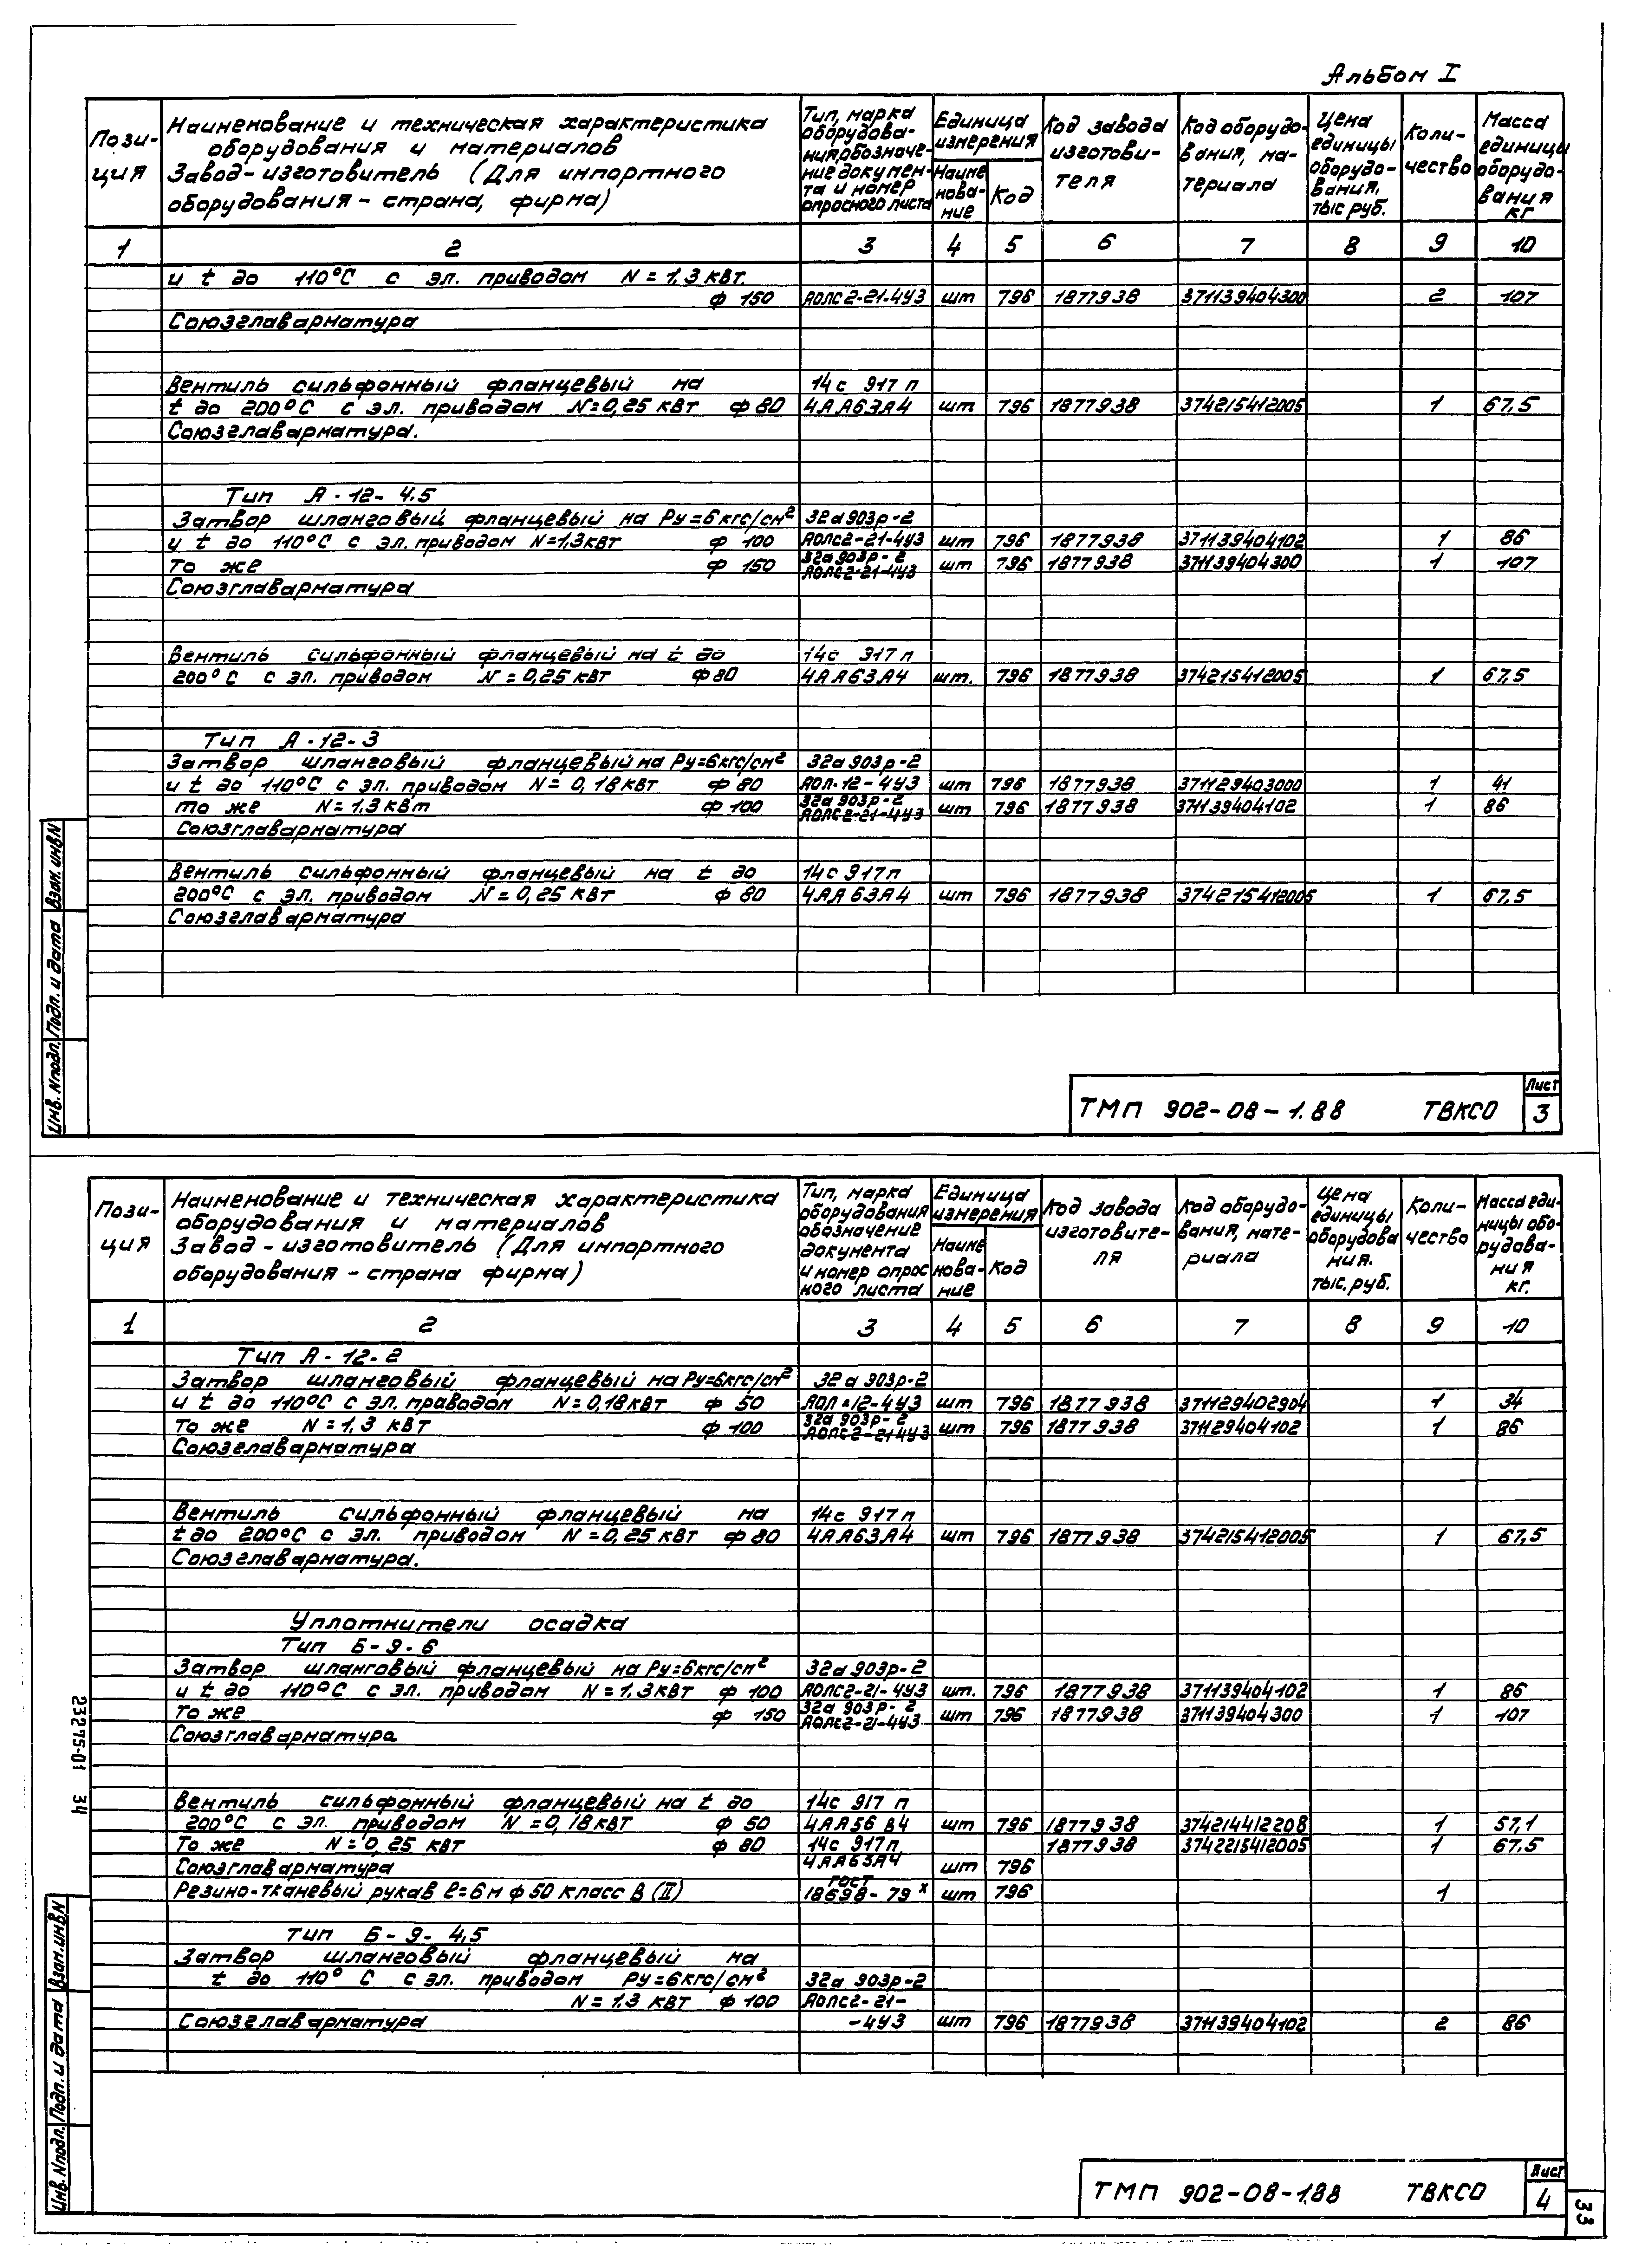 Альбом I
Пози-ция | Наименование и техническая характеристика оборудования и материалов Завод-изготовитель (Для импортного оборудования - страна, фирма) | Тип, марка оборудова-ния, обозначе-ние докумен-та и номер опросного листа | Единица измерения | Наиме-нова-ние | Код | Код завода изготови-теля | Код оборудо-вания, ма-териала | Цена единицы оборудо-вания, тыс руб. | Коли-чество | Масса единицы оборудо-вания кг
1 2 3 4 5 6 7 8 9 10
и t до 110°С с эл. приводом N = 1,3 кВт.
ф 150 АОЛС2-21-4У3 шт 796 1877938 371139404300 2 107
Союзглаварматура
Вентиль сильфонный фланцевый на 14с 917п
t до 200°С с эл. приводом N=0,25 кВт ф 80 4АА63А4 шт 796 1877938 374215412005 1 67,5
Союзглаварматура.
Тип А-12-4.5
Затвор шланговый фланцевый на Ру=6кгс/см² 32а903р-2
и t до 110°С с эл. приводом N=1,3кВт ф 100 АОЛС2-21-4У3 шт 796 1877938 371139404102 1 86
То же ф 150 32а903р-2 АОЛС2-21-4У3 шт 796 1877938 371139404300 1 107
Союзглаварматура
Вентиль сильфонный фланцевый на t до 14с 917п
200°С с эл. приводом N = 0,25 кВт ф80 4АА63А4 шт. 796 1877938 374215412005 1 67,5
Тип А-12-3
Затвор шланговый фланцевый на Ру=6кгс/см² 32а903р-2
и t до 110°С с эл. приводом N = 0,18кВт ф 80 АОЛ-12-4У3 шт 796 1877938 371129403000 1 41
то же N=1,3кВт ф 100 32а903р-2 АОЛС2-21-4У3 шт 796 1877938 371139404102 1 86
Союзглаварматура
Вентиль сильфонный фланцевый на t до 14с917п
200°С с эл. приводом N = 0,25 кВт ф 80 4АА63А4 шт 796 1877938 374215412005 1 67,5
Союзглаварматура
Инв. Nподл. Подп. и дата Взам. инвN
ТМП 902-08-1.88 ТВКСО Лист 3
Пози-ция | Наименование и техническая характеристика оборудования и материалов Завод-изготовитель (Для импортного оборудования - страна фирма) | Тип, марка оборудования обозначение документа и номер опрос ного листа | Единица измерения | Наиме нова-ние | Код | Код завода изготовите-ля | Код оборудо-вания, мате-риала | Цена единицы оборудова ния. тыс. руб. | Коли-чество | Масса еди-ницы обо-рудова-ния кг.
1 2 3 4 5 6 7 8 9 10
Тип А-12-2
Затвор шланговый фланцевый на Ру=6кгс/см² 32а903р-2
и t до 110°С с эл. приводом N=0,18кВт ф 50 АОЛ-12-4У3 шт 796 1877938 371129402904 1 34
То же N = 1,3 кВт ф 100 32а903р-2 АОЛС2-21-4У3 шт 796 1877938 371129404102 1 86
Союзглаварматура
Вентиль сильфонный фланцевый на 14с 917п
t до 200°С с эл. приводом N = 0,25 кВт ф 80 4АА63А4 шт 796 1877938 374215412005 1 67,5
Союзглаварматура.
Уплотнители осадка
Тип Б-9-6
Затвор шланговый фланцевый на Ру=6кгс/см² 32а903р-2
и t до 110°С с эл. приводом N = 1,3кВт ф 100 АОЛС2-21-4У3 шт. 796 1877938 371139404102 1 86
то же ф 150 32а903р-2 АОЛС2-21-4У3 шт 796 1877938 371139404300 1 107
Союзглаварматура
Вентиль сильфонный фланцевый на t до 14с 917 п
200°С с эл. приводом N = 0,18кВт ф 50 4АА56В4 шт 796 1877938 374214412208 1 57,1
То же N = 0,25 кВт ф 80 14с 917п 1877938 3742215412005 1 67,5
Союзглаварматура 4АА63А4 шт 796
Резино-тканевый рукав ℓ=6м ф 50 класс В (II) ГОСТ 18698-79ˣ шт 796 1
Тип Б-9-4,5
Затвор шланговый фланцевый на
t до 110°С с эл. приводом Ру=6кгс/см² 32а903р-2
N = 1,3 кВт ф 100 АОЛС2-21-
Союзглаварматура -4У3 шт 796 1877938 371139404102 2 86
23275-01 34
Инв. Nподл. Подп. и дата Взам. инвN
ТМП 902-08-1.88 ТВКСО Лист 4
33